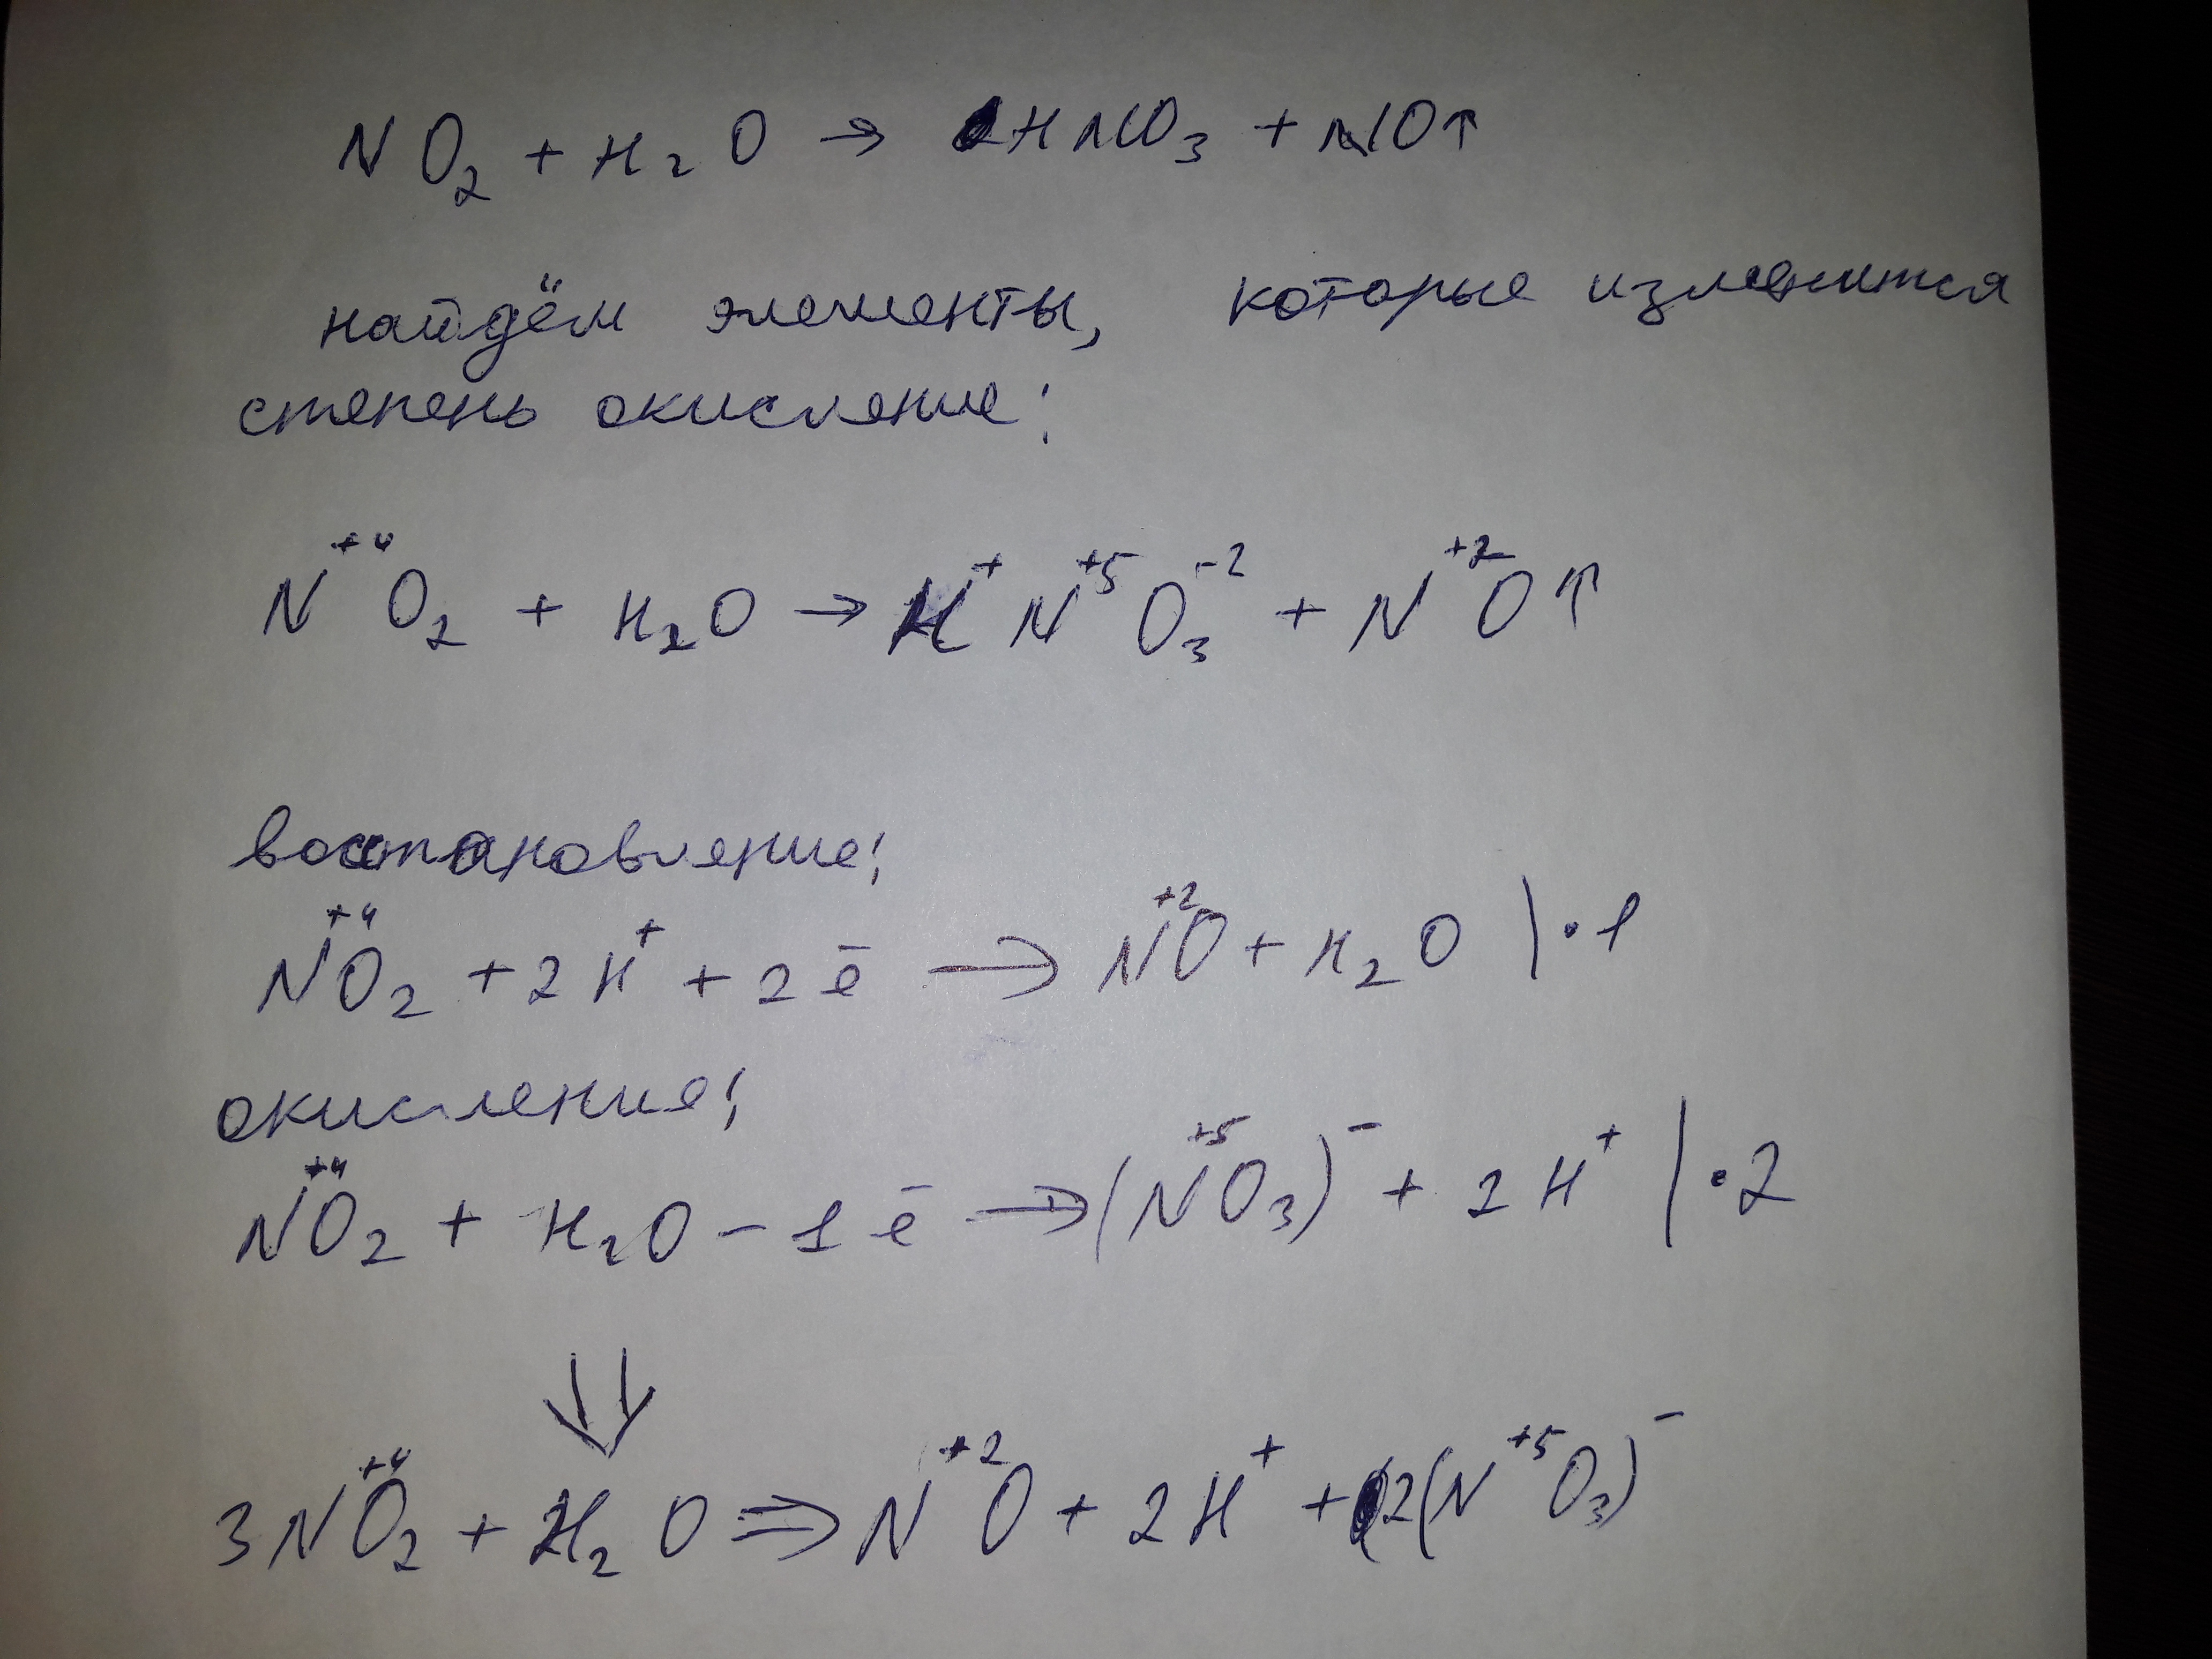 NO₂ + H₂O → HNO₃ + NO↑
найдём элементы, которые изменится
степень окисление:
N⁺⁴O₂ + H₂O → H⁺N⁺⁵O₃⁻² + N⁺²O↑
востановление:
N⁺⁴O₂ + 2H⁺ + 2ē → N⁺²O + H₂O | · 1
окисление:
N⁺⁴O₂ + H₂O - 1ē → (N⁺⁵O₃)⁻ + 2H⁺ | · 2
⇓
3N⁺⁴O₂ + H₂O ⇒ N⁺²O + 2H⁺ + 2(N⁺⁵O₃)⁻